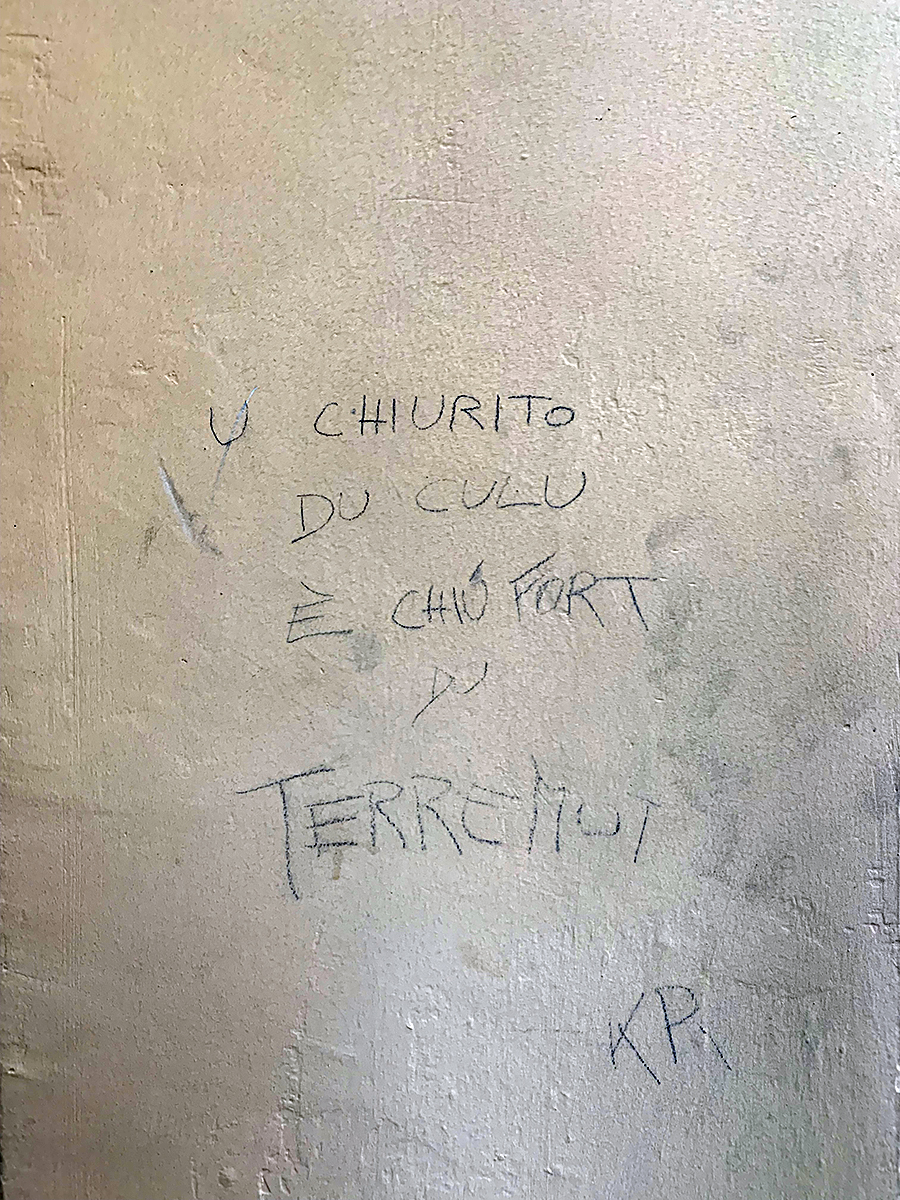 U CHIURITO
DU CULU
È CHIÚ FORT
DU
TERREMUT
KR